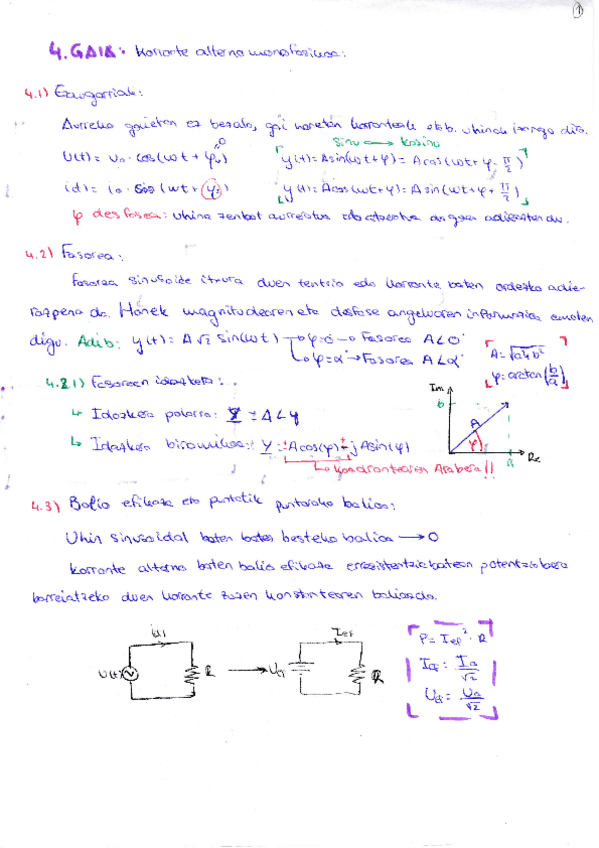 1
4. GAIA: Korronte alterno monofasikoa:
4.1) Ezaugarriak:
Aurreko gaietan ez bezala, gai honetan korronteak etb. uhinak izango dira.
Sinu ⟷ Kosinu
U(t) = U₀ · cos(ωt + φ₀) 0 y(t) = A sin(ωt + φ) = A cos(ωt + φ - π/2)
i(t) = I₀ · cos(ωt + φᵢ) y(t) = A cos(ωt + φ) = A sin(ωt + φ + π/2)
φ desfasea: uhina zenbat aurreratua edo atzeratua dagoen adierazten du.
4.2) Fasorea:
Fasorea sinusoide itxura duen tentsio edo korronte baten ordezko adie-
razpena da. Honek magnitudearen eta desfase angeluaren informazioa ematen
digu. Adib: y(t) = A√2 sin(ωt) → φ=0 → Fasorea A∠0°
→ φ=α → Fasorea A∠α°
A = √a²+b²
φ = arctan(b/a)
4.2.1) Fasoreen idazketa:
↳ Idazkera polarra: Y = A∠φ
↳ Idazkera binomikoa: Y = ±A cos(φ) ± j A sin(φ)
↳ Koadrantearen Arabera!!
Im
b
A
φ
a
Re
4.3) Balio efikaza eta puntatik puntarako balioa:
Uhin sinusoidal baten batez besteko balioa → 0
Korronte alterno baten balio efikaza erresistentzia batean potentzia bera
barreiatzeko duen korronte zuzen konstantearen balioa da.
i(t) Ief
U(t) R → Uef R
P = Ief² · R
Ief = I₀/√2
Uef = U₀/√2